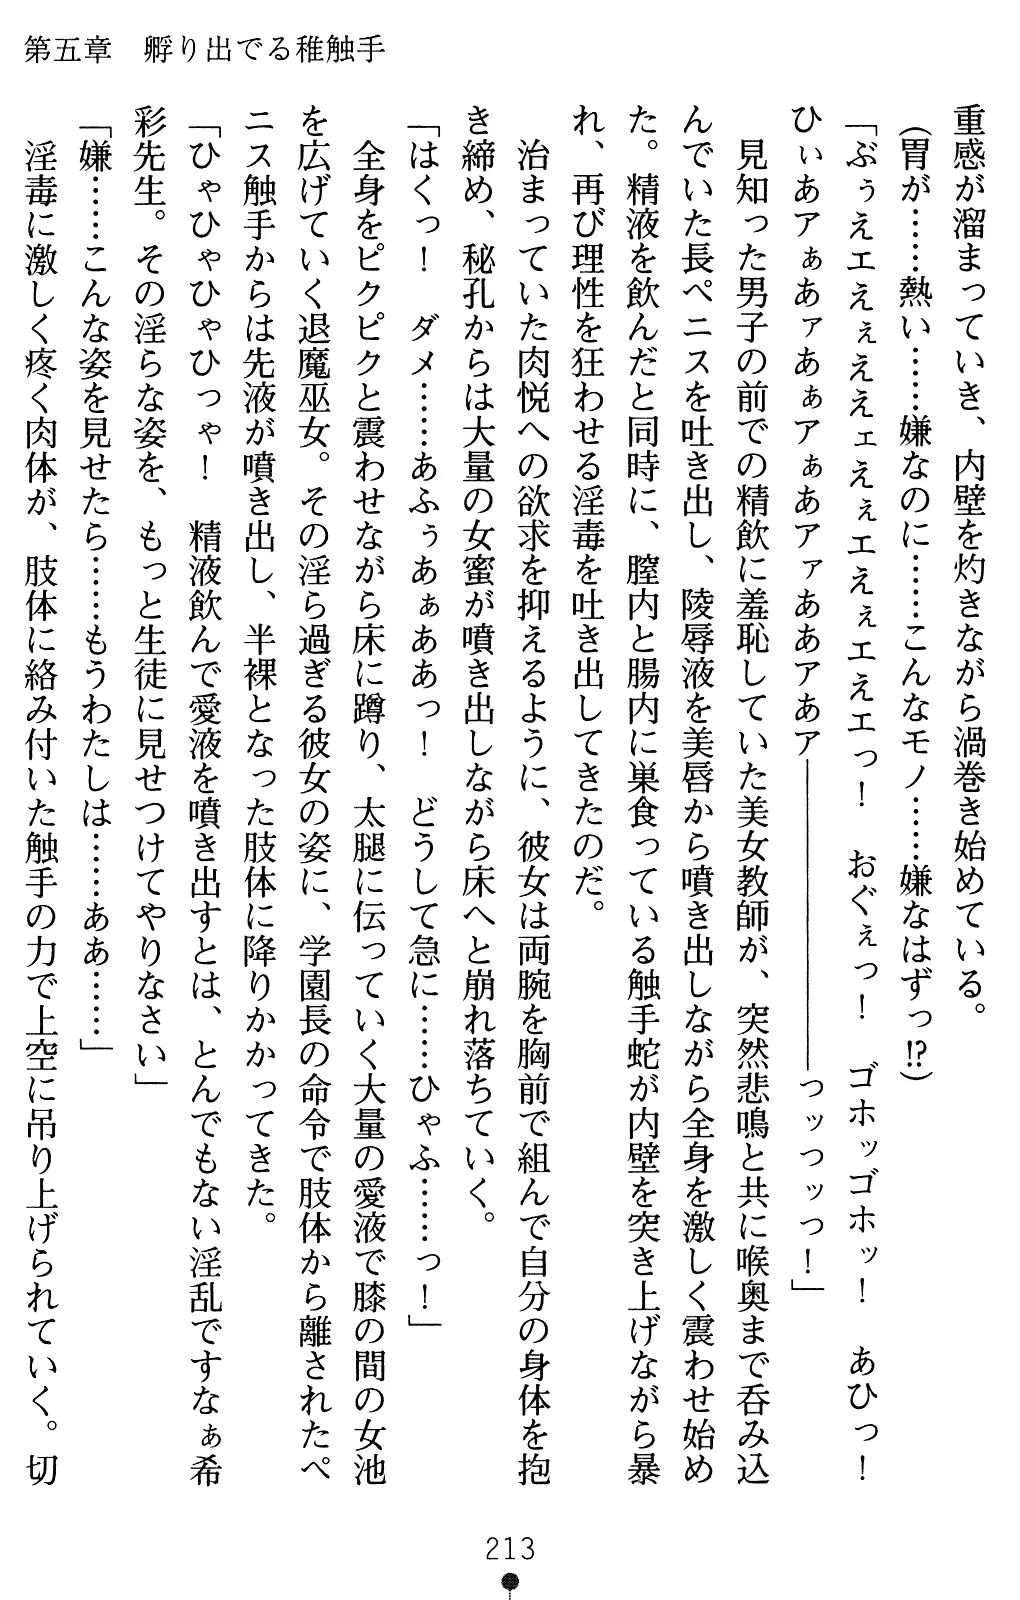 第五章　孵り出でる稚触手
重感が溜まっていき、内壁を灼きながら渦巻き始めている。
(胃が……熱い……嫌なのに……こんなモノ……嫌なはずっ!?)
「ぶぅえエえぇええェえぇエえぇエえエっ！　おぐぇっ！　ゴホッゴホッ！　あひっ！
ひぃあアぁあァあぁアぁあアァああアあア――――――――っッつッっ！」
　見知った男子の前での精飲に羞恥していた美女教師が、突然悲鳴と共に喉奥まで呑み込
んでいた長ペニスを吐き出し、陵辱液を美唇から噴き出しながら全身を激しく震わせ始め
た。精液を飲んだと同時に、膣内と腸内に巣食っている触手蛇が内壁を突き上げながら暴
れ、再び理性を狂わせる淫毒を吐き出してきたのだ。
　治まっていた肉悦への欲求を抑えるように、彼女は両腕を胸前で組んで自分の身体を抱
き締め、秘孔からは大量の女蜜が噴き出しながら床へと崩れ落ちていく。
「はくっ！　ダメ……あふぅあぁああっ！　どうして急に……ひゃふ……っ！」
　全身をピクピクと震わせながら床に蹲り、太腿に伝っていく大量の愛液で膝の間の女池
を広げていく退魔巫女。その淫ら過ぎる彼女の姿に、学園長の命令で肢体から離されたペ
ニス触手からは先液が噴き出し、半裸となった肢体に降りかかってきた。
「ひゃひゃひゃひっゃ！　精液飲んで愛液を噴き出すとは、とんでもない淫乱ですなぁ希
彩先生。その淫らな姿を、もっと生徒に見せつけてやりなさい」
「嫌……こんな姿を見せたら……もうわたしは……ああ……」
　淫毒に激しく疼く肉体が、肢体に絡み付いた触手の力で上空に吊り上げられていく。切
213